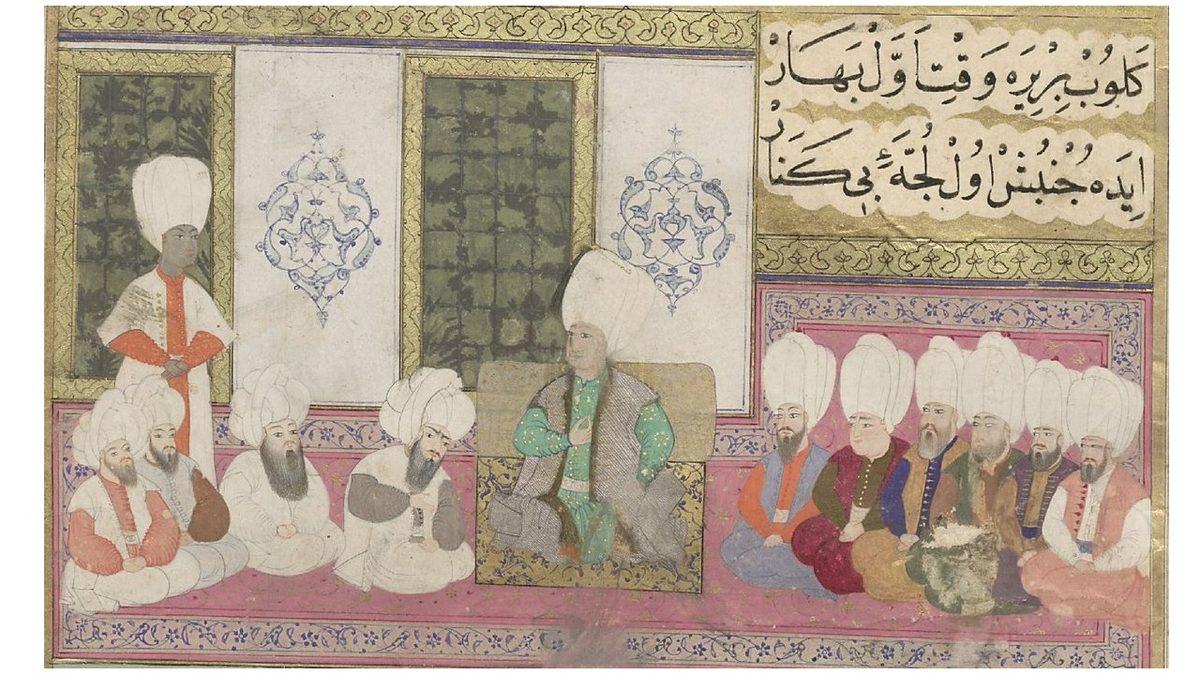 كَلُوبْ بِرْيِرَه وَقْتِ اَوَّلْ بَهَارْ
اِيدَه جُنْبُشْ اُولْ لُجَّهٔ بِى كَنَارْ